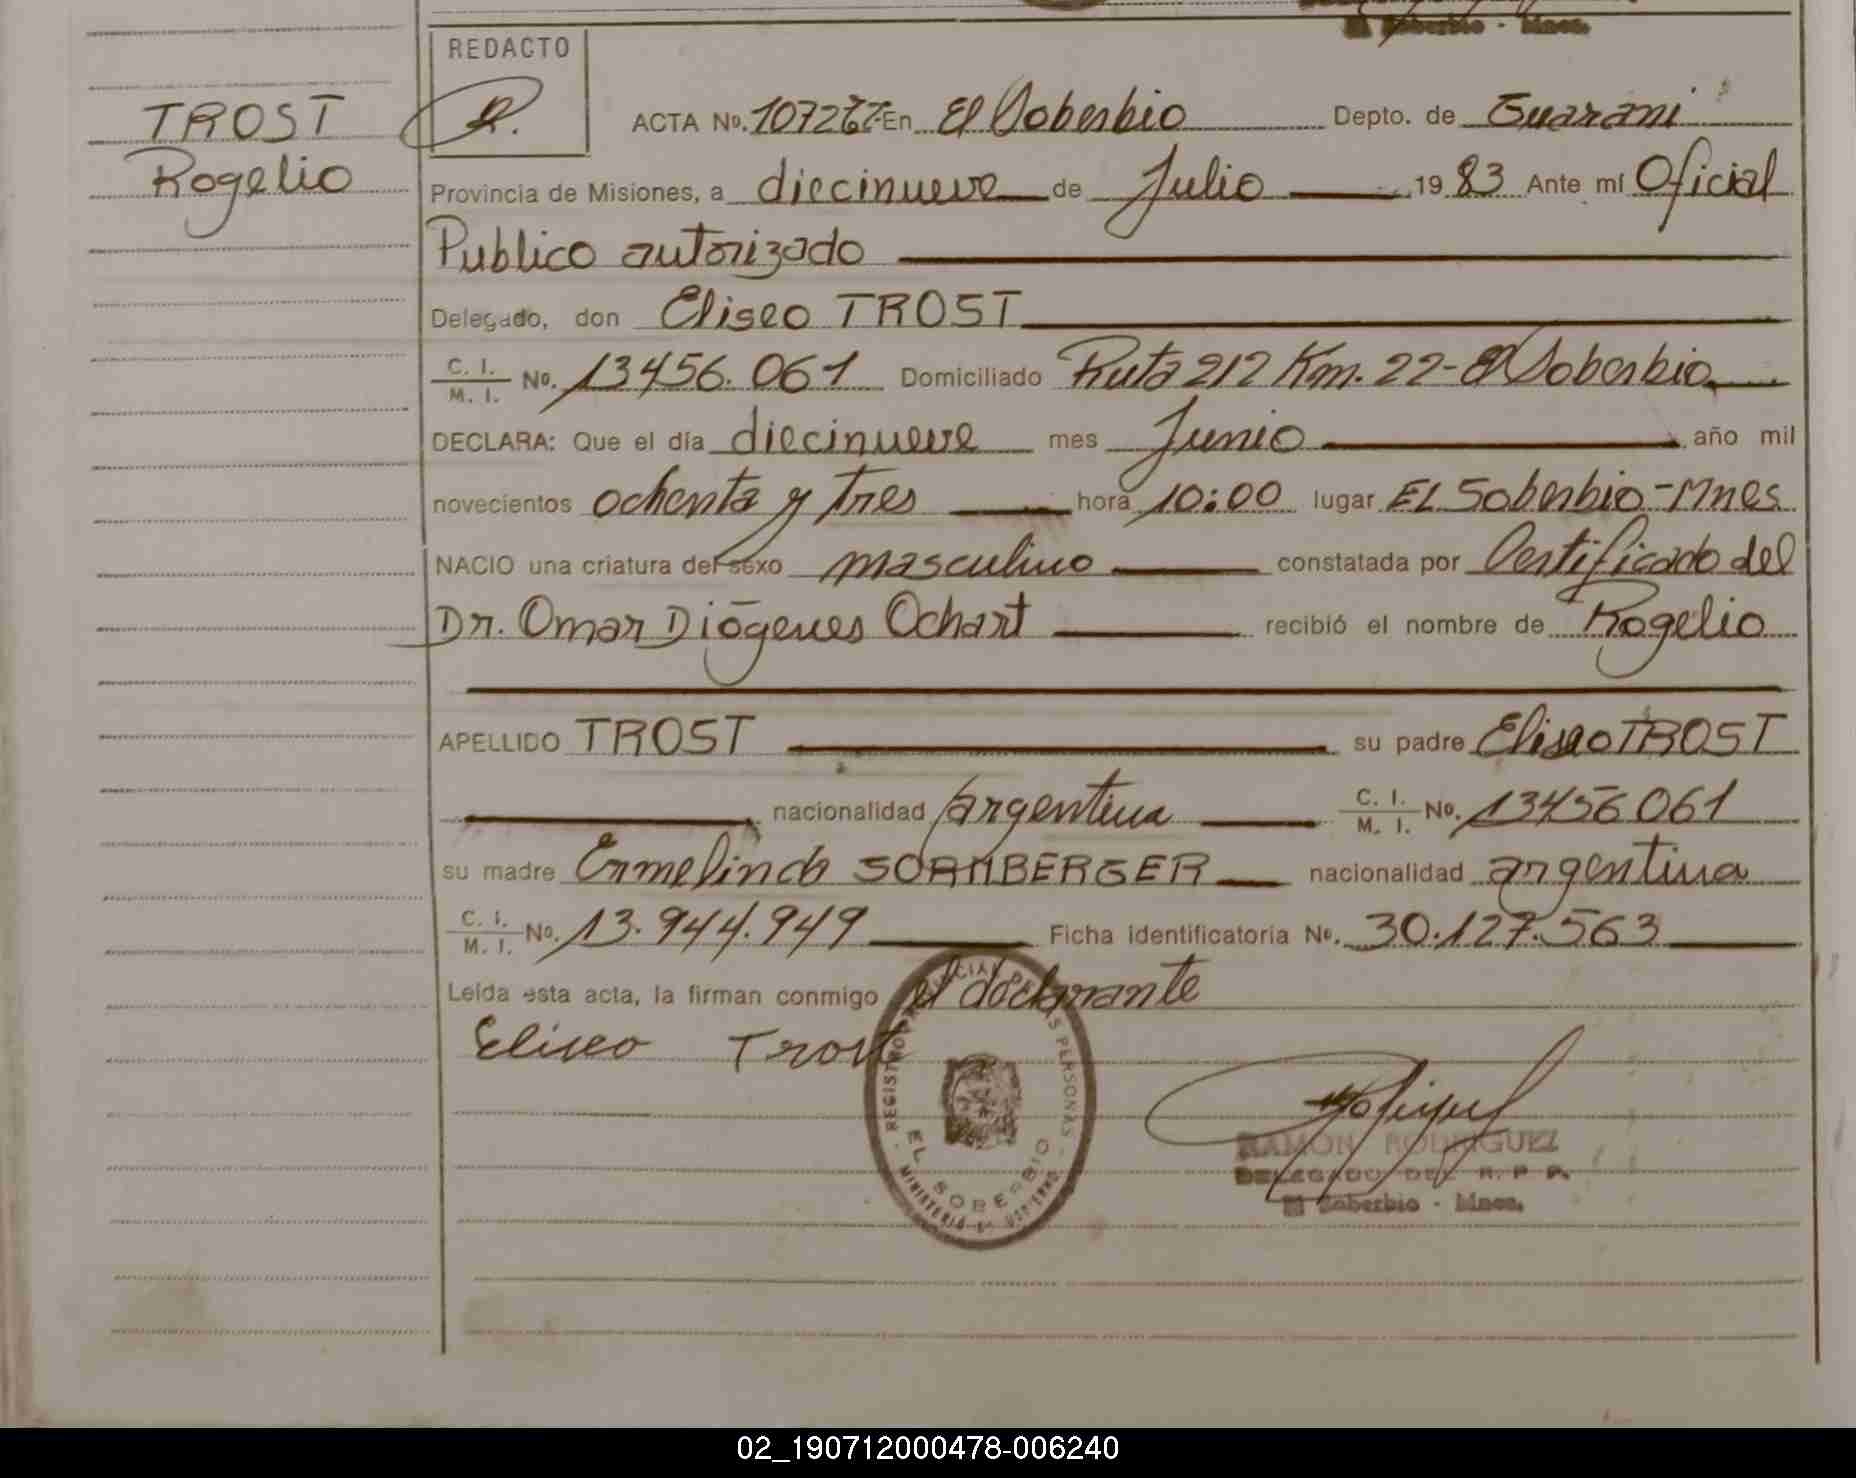 El Soberbio - Mnes.
REDACTO
TROST
Rogelio
ACTA No. En El Soberbio Depto. de Guarani
Provincia de Misiones, a diecinueve de Julio 19 83 Ante mí Oficial
Publico autorizado
Delegado, don Eliseo TROST
C. I.
M. I. No. 13456.061 Domiciliado Ruta 212 Km. 22-El Soberbio
DECLARA: Que el día diecinueve mes Junio año mil
novecientos ochenta y tres hora 10:00 lugar EL Soberbio-Mnes
NACIO una criatura del sexo masculino constatada por Certificado del
Dr. Omar Diógenes Ochart recibió el nombre de Rogelio
APELLIDO TROST su padre Eliseo TROST
nacionalidad argentina C. I.
M. I. No. 13456061
su madre Ermelinda nacionalidad argentina
C. I.
M. I. No. 13.944.949 Ficha identificatoria No. 30.127.563
Leída esta acta, la firman conmigo el declarante
Eliseo Trost
REGISTRO PROVINCIAL DE LAS PERSONAS
EL SOBERBIO
MINISTERIO DE GOBIERNO
RAMON RODRIGUEZ
DELEGADO DEL R. P. P.
El Soberbio - Mnes.
02_190712000478-006240